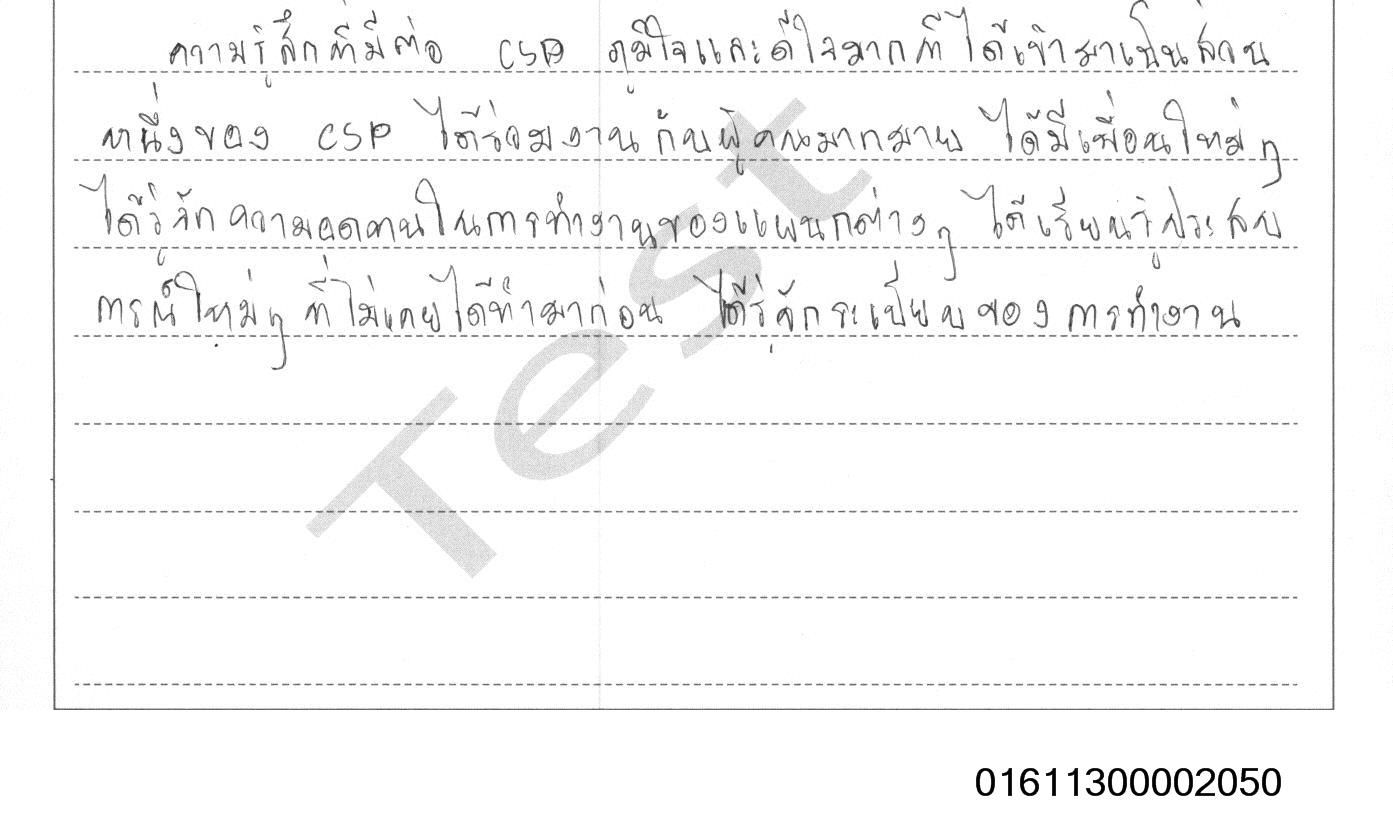 ความรู้สึกที่มีต่อ CSP ภูมิใจและดีใจมากที่ได้เข้ามาเป็นส่วน
หนึ่งของ CSP ได้ร่วมงานกับผู้คนมากมาย ได้มีเพื่อนใหม่ๆ
ได้รู้จักความอดทนในการทำงานของแผนกต่างๆ ได้เรียนรู้ประสบ
การณ์ใหม่ๆ ที่ไม่เคยได้ทำมาก่อน ได้รู้จักระเบียบของการทำงาน
Test
01611300002050